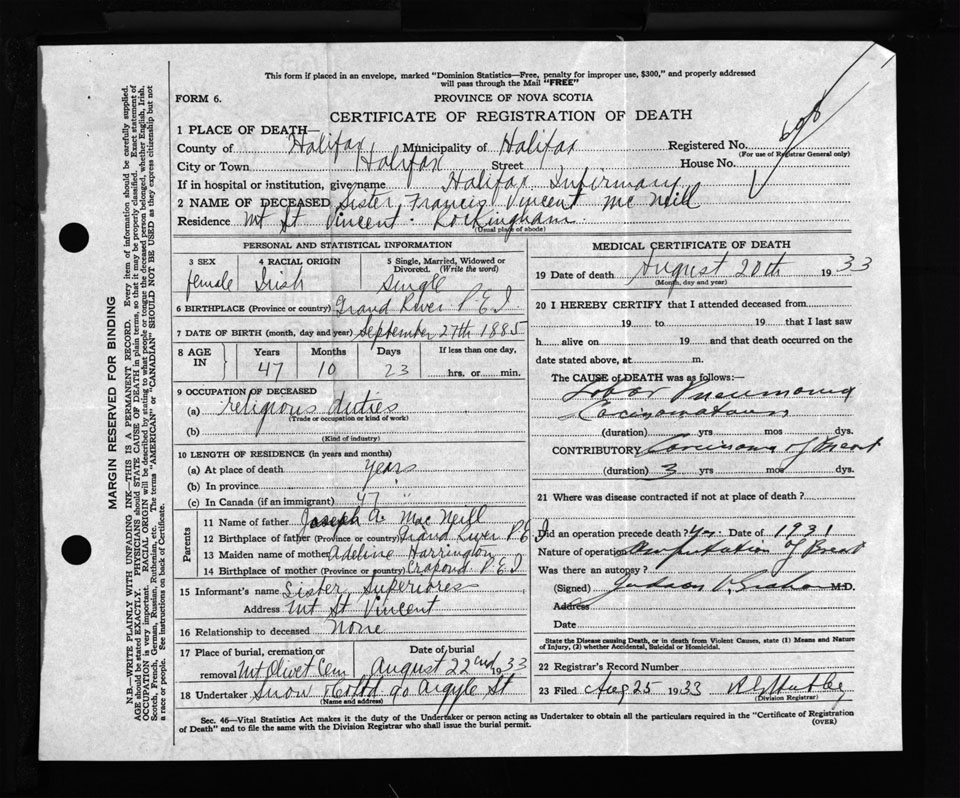 This form if placed in an envelope, marked "Dominion Statistics—Free, penalty for improper use, $300," and properly addressed
will pass through the Mail "FREE"
FORM 6.
PROVINCE OF NOVA SCOTIA
CERTIFICATE OF REGISTRATION OF DEATH
1 PLACE OF DEATH—
County of Halifax Municipality of Halifax Registered No. 698
(For use of Registrar General only)
City or Town Halifax Street House No.
If in hospital or institution, give name Halifax Infirmary
2 NAME OF DECEASED Sister Francis Vincent Mc Neill
Residence Mt St Vincent - Rockingham
(Usual place of abode)
PERSONAL AND STATISTICAL INFORMATION
3 SEX 4 RACIAL ORIGIN 5 Single, Married, Widowed or
Divorced. (Write the word)
female Irish Single
6 BIRTHPLACE (Province or country) Grand River P.E.I
7 DATE OF BIRTH (month, day and year) September 27th 1885
8 AGE IN Years Months Days If less than one day,
47 10 23 hrs. or min.
9 OCCUPATION OF DECEASED
(a) religious duties
(Trade or occupation or kind of work)
(b)
(Kind of industry)
10 LENGTH OF RESIDENCE (in years and months)
(a) At place of death years
(b) In province "
(c) In Canada (if an immigrant) 47 "
Parents
11 Name of father Joseph A. Mac Neill
12 Birthplace of father (Province or country) Grand River P.E.I
13 Maiden name of mother Adeline Harrington
14 Birthplace of mother (Province or country) Crapaud P.E.I
15 Informant's name Sister Superiores
Address Mt St Vincent
16 Relationship to deceased None
17 Place of burial, cremation or removal Date of burial
Mt Olivet Cem August 22nd 1933
18 Undertaker Snow & Co Ltd 90 Argyle St
(Name and address)
MEDICAL CERTIFICATE OF DEATH
19 Date of death August 20th 1933
(Month, day and year)
20 I HEREBY CERTIFY that I attended deceased from
19 to 19 that I last saw
h alive on 19 and that death occurred on the
date stated above, at m.
The CAUSE of DEATH was as follows:—
Lobar Pneumonia
Carcinomatous
(duration) yrs mos dys.
CONTRIBUTORY Carcinoma of Breast
(duration) 3 yrs mos dys.
21 Where was disease contracted if not at place of death?
Did an operation precede death? Yes. Date of 1931
Nature of operation Amputation of Breast
Was there an autopsy?
(Signed) Judson V. Graham M.D.
Address
Date
State the Disease causing Death, or in death from Violent Causes, state (1) Means and Nature
of Injury, (2) whether Accidental, Suicidal or Homicidal.
22 Registrar's Record Number
23 Filed Aug 25 1933
(Division Registrar)
Sec. 46—Vital Statistics Act makes it the duty of the Undertaker or person acting as Undertaker to obtain all the particulars required in the "Certificate of Registration
of Death" and to file the same with the Division Registrar who shall issue the burial permit. (OVER)
MARGIN RESERVED FOR BINDING
N.B.—WRITE PLAINLY WITH UNFADING INK—THIS IS A PERMANENT RECORD. Every item of information should be carefully supplied.
AGE should be stated EXACTLY. PHYSICIANS should STATE CAUSE OF DEATH in plain terms, so that it may be properly classified. Exact statement of
OCCUPATION is very important. RACIAL ORIGIN will be described by stating to what people or tongue the deceased person belonged, whether English, Irish,
Scotch, French, German, Russian, Ruthenian, etc. The terms "AMERICAN" or "CANADIAN" SHOULD NOT BE USED as they express citizenship but not
a race or people. See instructions on back of Certificate.